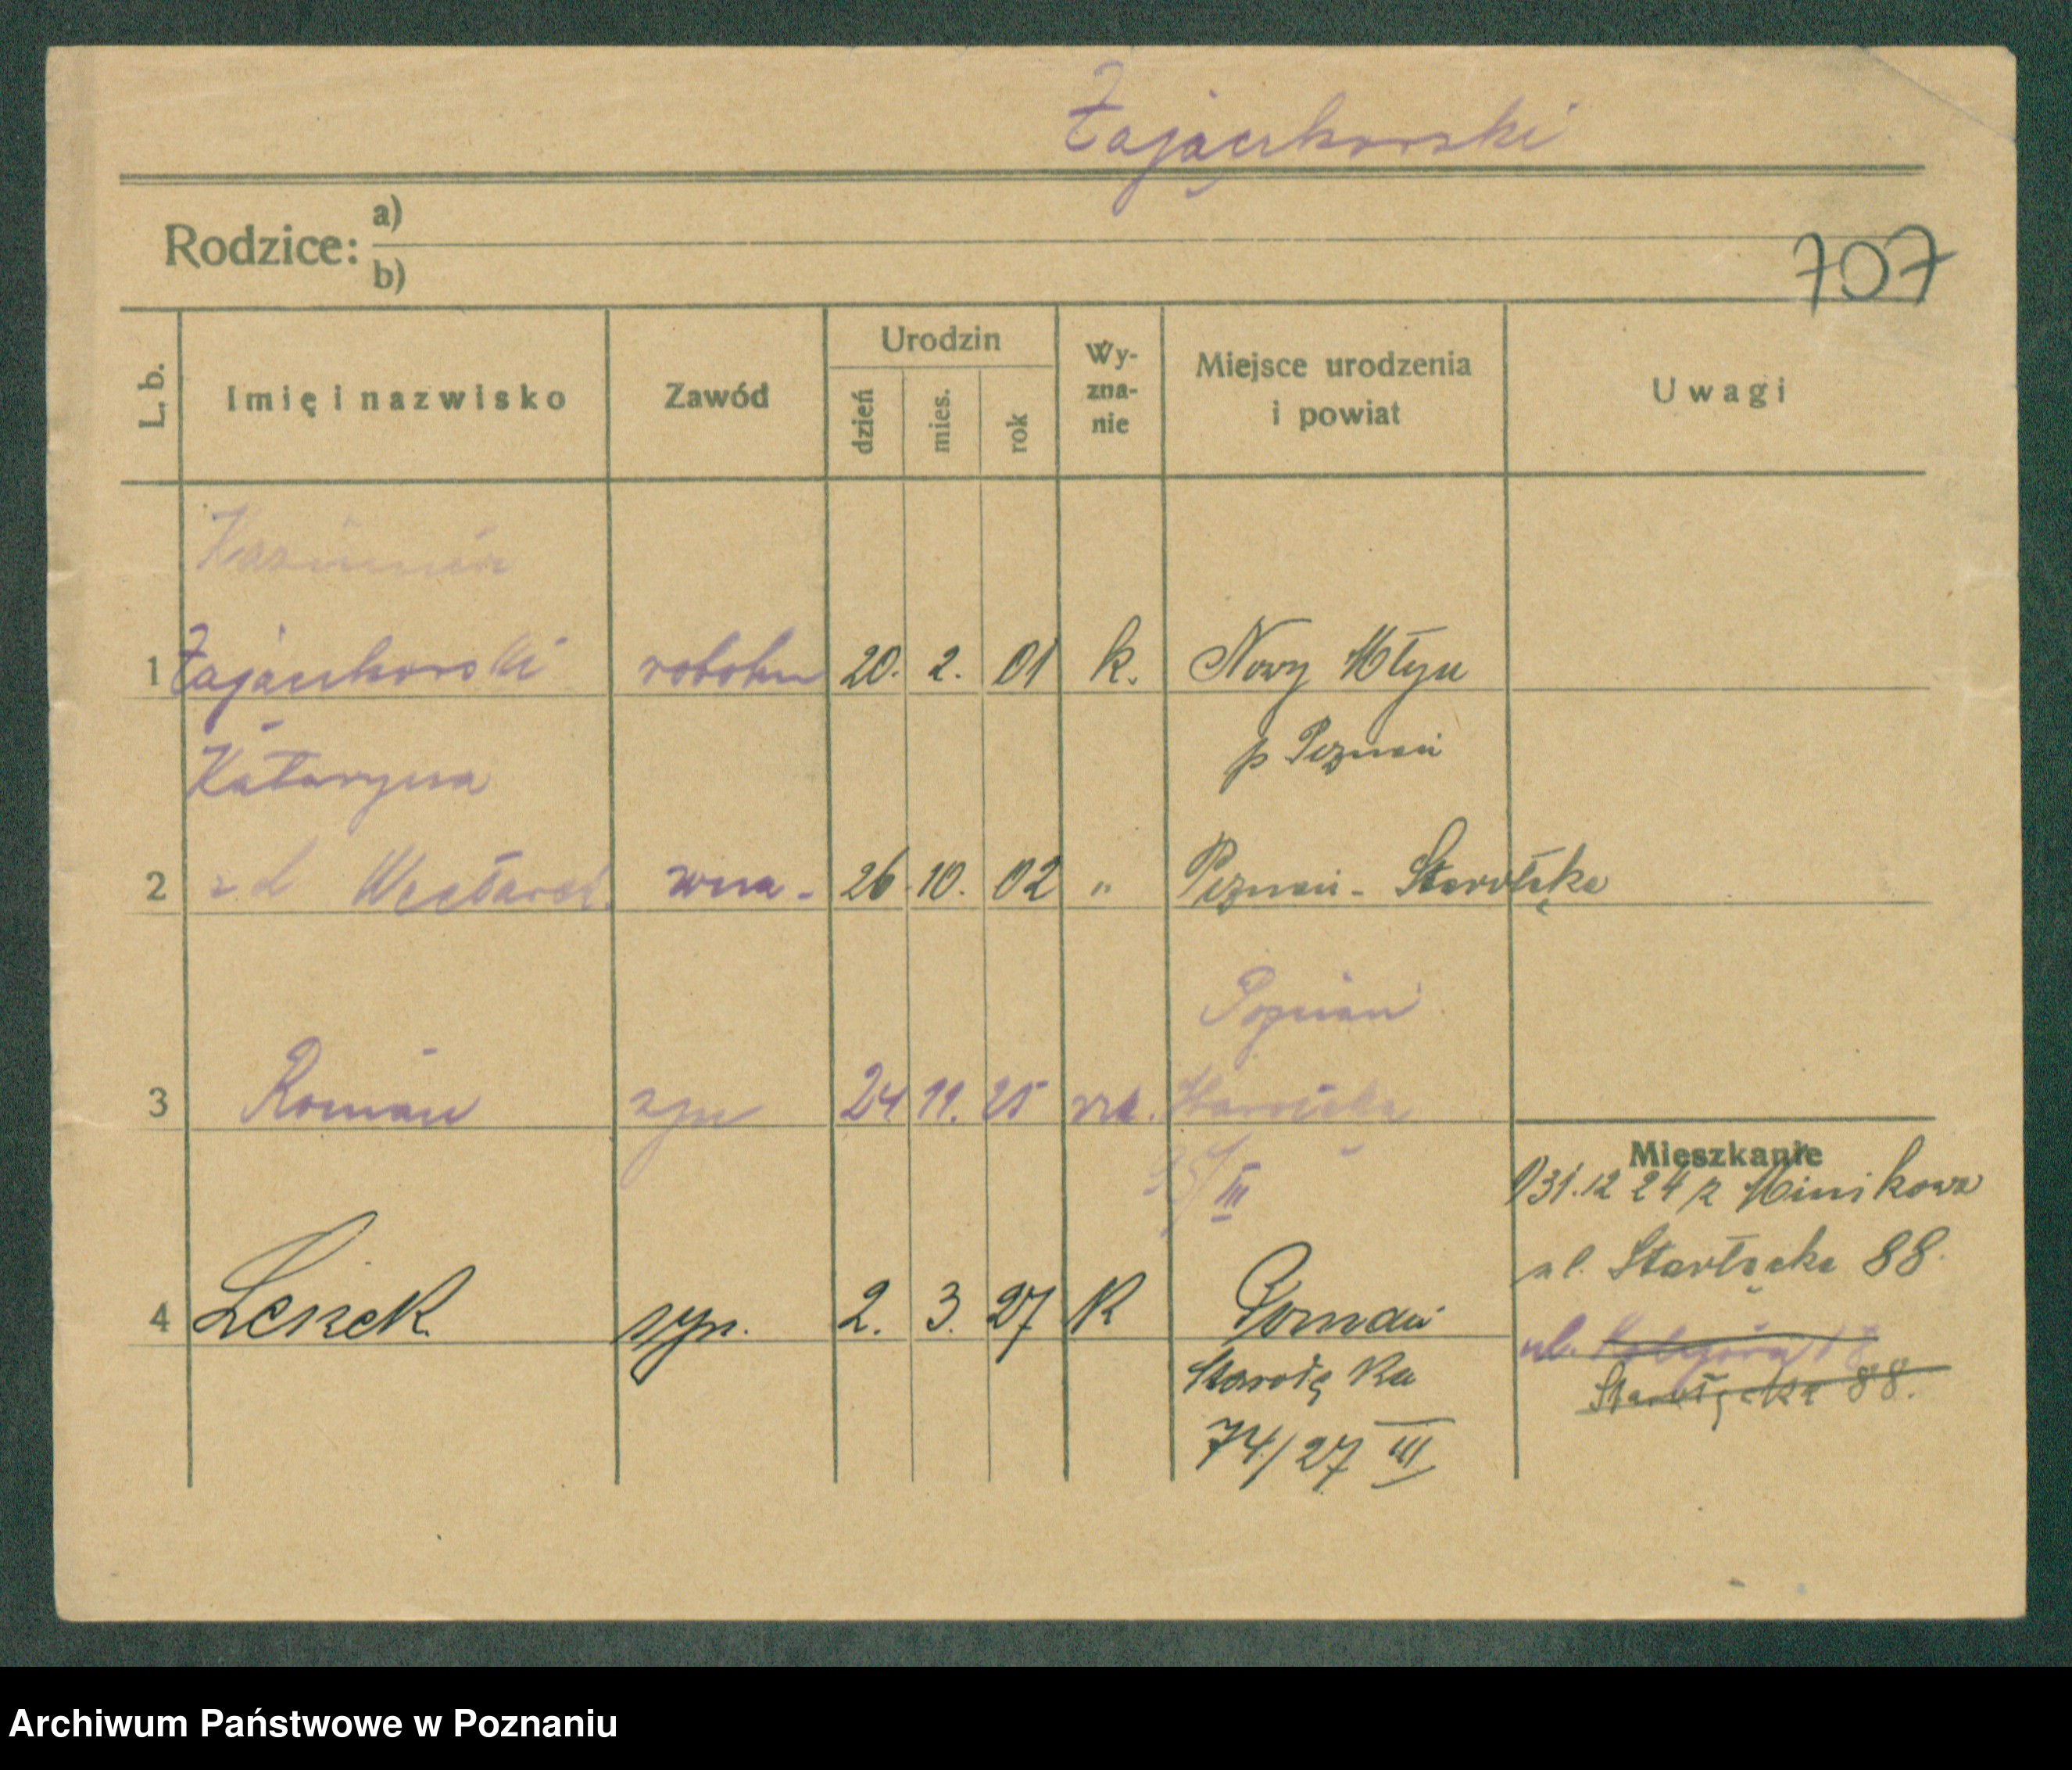 Zajączkowski
Rodzice: a)
b)
707
L. b. Imię i nazwisko Zawód Urodzin dzień mies. rok Wy-zna-nie Miejsce urodzenia i powiat Uwagi
Kazimierz
1 Zajączkowski robotn 20. 2. 01 k. Nowy Młyn
p Poznań
Katarzyna
2 z d 26. 10. 02 " Poznań - Starołęka
Poznań
3 Roman syn 24 11. 25 rk. Starołęka
III
Mieszkanie
1) 31.12 24 z Minikowa
ul. Starłęcka 88.
4 Leszek syn. 2. 3. 27 K Poznań
Starołęka
ul. 18
Starołęcka 88.
74/27 III
Archiwum Państwowe w Poznaniu